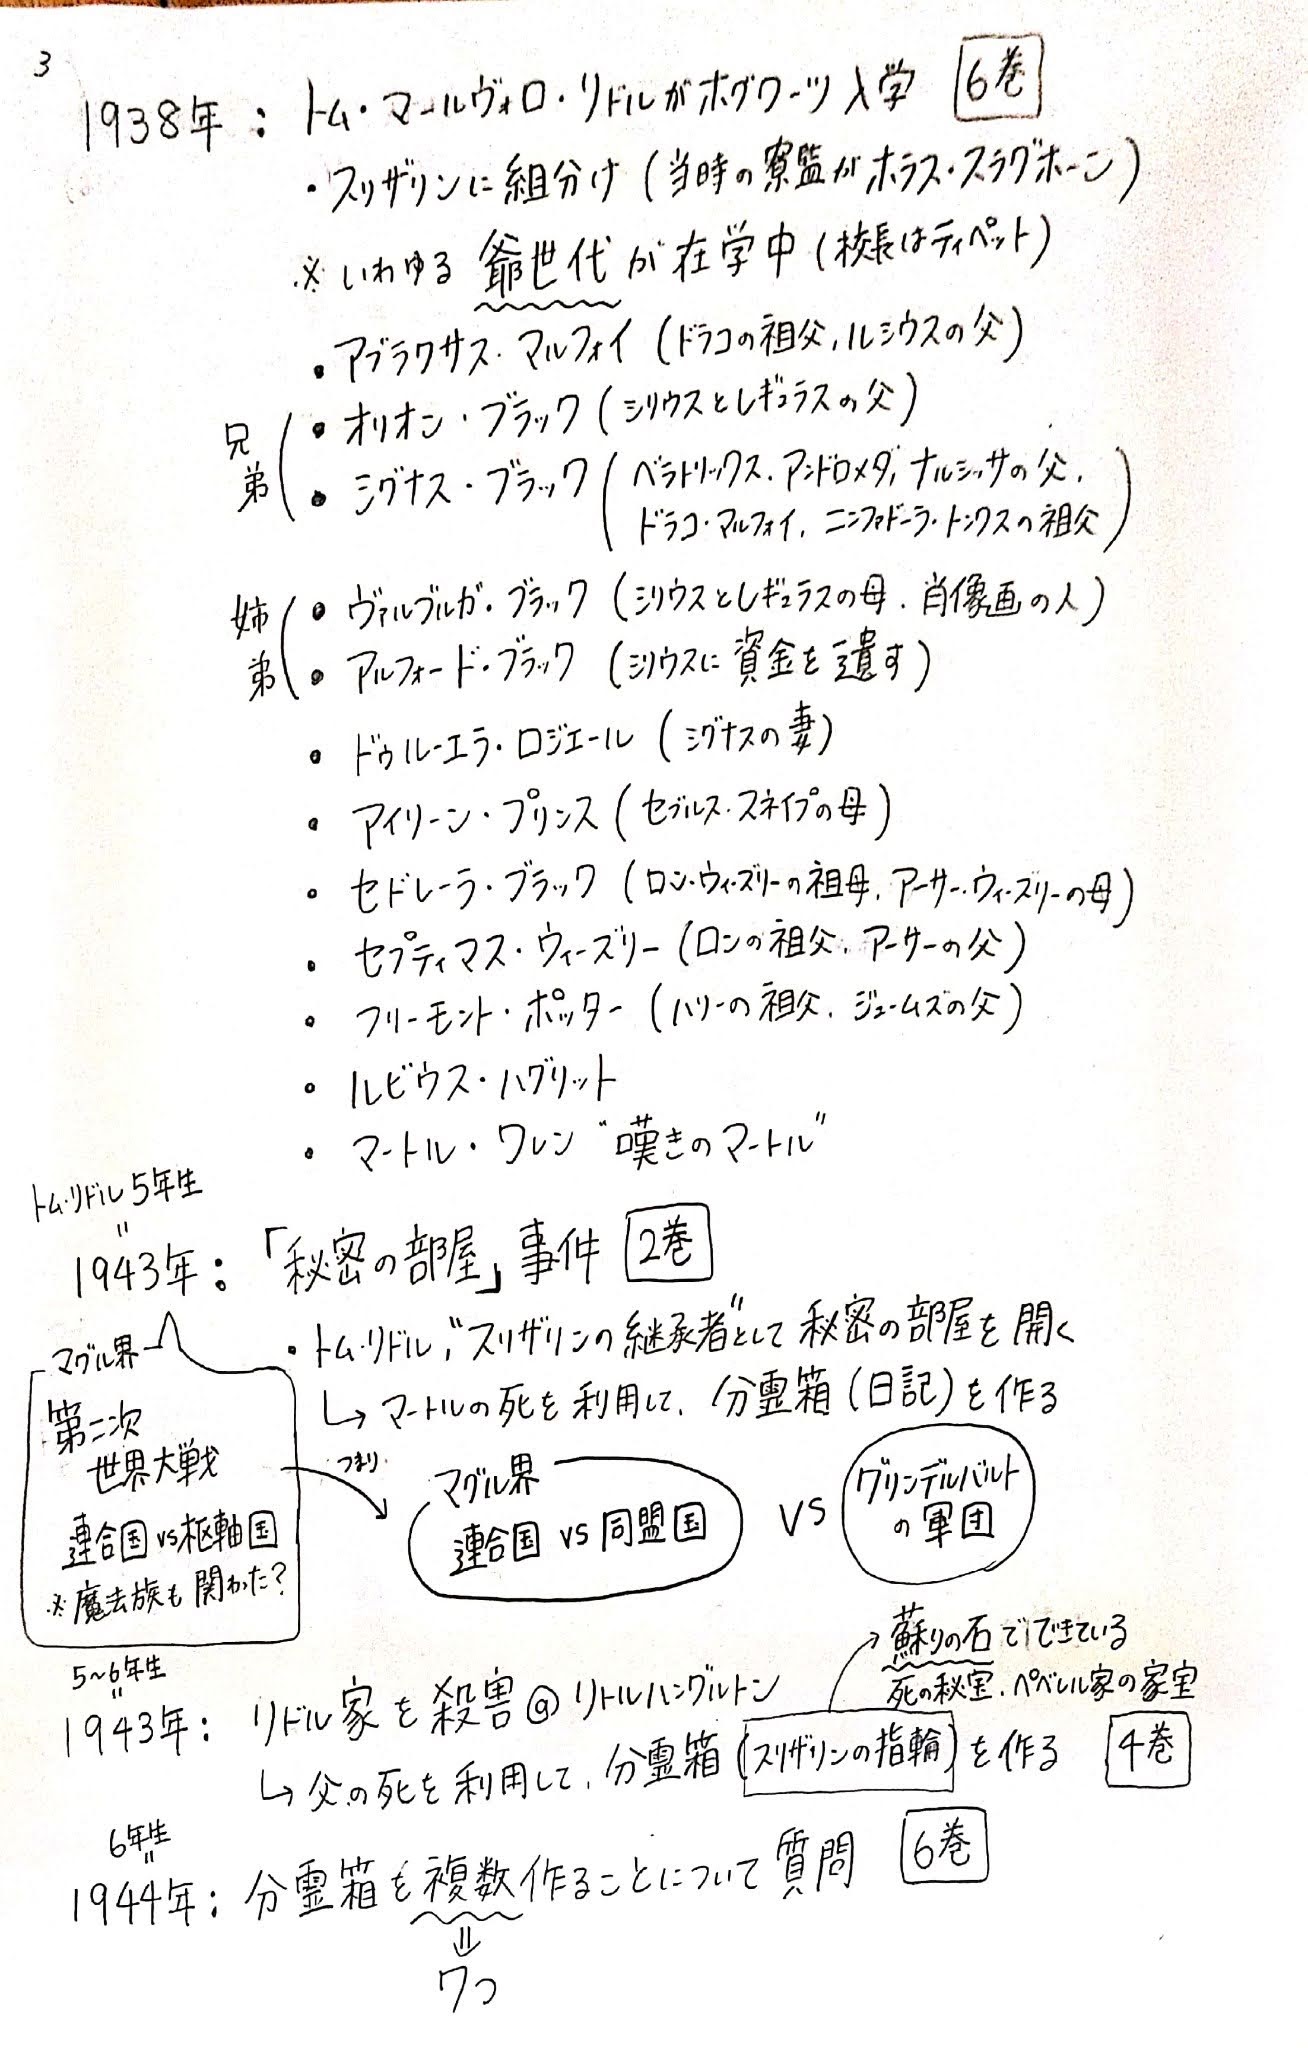 3
1938年：トム・マールヴォロ・リドルがホグワーツ入学 6巻
・スリザリンに組分け（当時の寮監がホラス・スラグホーン）
※いわゆる爺世代が在学中（校長はディペット）
・アブラクサス・マルフォイ（ドラコの祖父，ルシウスの父）
兄弟
・オリオン・ブラック（シリウスとレギュラスの父）
・シグナス・ブラック（ベラトリックス、アンドロメダ，ナルシッサの父，
ドラコ・マルフォイ，ニンファドーラ・トンクスの祖父）
姉弟
・ヴァルブルガ・ブラック（シリウスとレギュラスの母，肖像画の人）
・アルフォード・ブラック（シリウスに資金を遺す）
・ドゥルーエラ・ロジエール（シグナスの妻）
・アイリーン・プリンス（セブルス・スネイプの母）
・セドレーラ・ブラック（ロン・ウィーズリーの祖母，アーサー・ウィーズリーの母）
・セプティマス・ウィーズリー（ロンの祖父，アーサーの父）
・フリーモント・ポッター（ハリーの祖父，ジェームズの父）
・ルビウス・ハグリット
・マートル・ワレン“嘆きのマートル”
トム・リドル5年生
〃
1943年：「秘密の部屋」事件 2巻
・トム・リドル，“スリザリンの継承者”として秘密の部屋を開く
↳マートルの死を利用して，分霊箱（日記）を作る
マグル界
第二次
世界大戦
連合国vs枢軸国
※魔法族も関わった？
つまり
マグル界
連合国 vs 同盟国
VS
グリンデルバルト
の軍団
5〜6年生
〃
1943年：リドル家を殺害@リトルハングルトン
↳父の死を利用して，分霊箱（スリザリンの指輪）を作る 4巻
蘇りの石でできている
死の秘宝，ペベレル家の家宝
6年生
〃
1944年：分霊箱を複数作ることについて質問 6巻
⇓
7つ